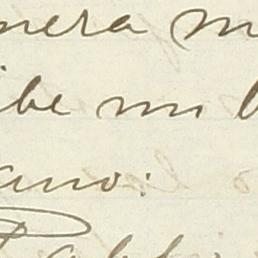 nera m
ibe mi b
ano: